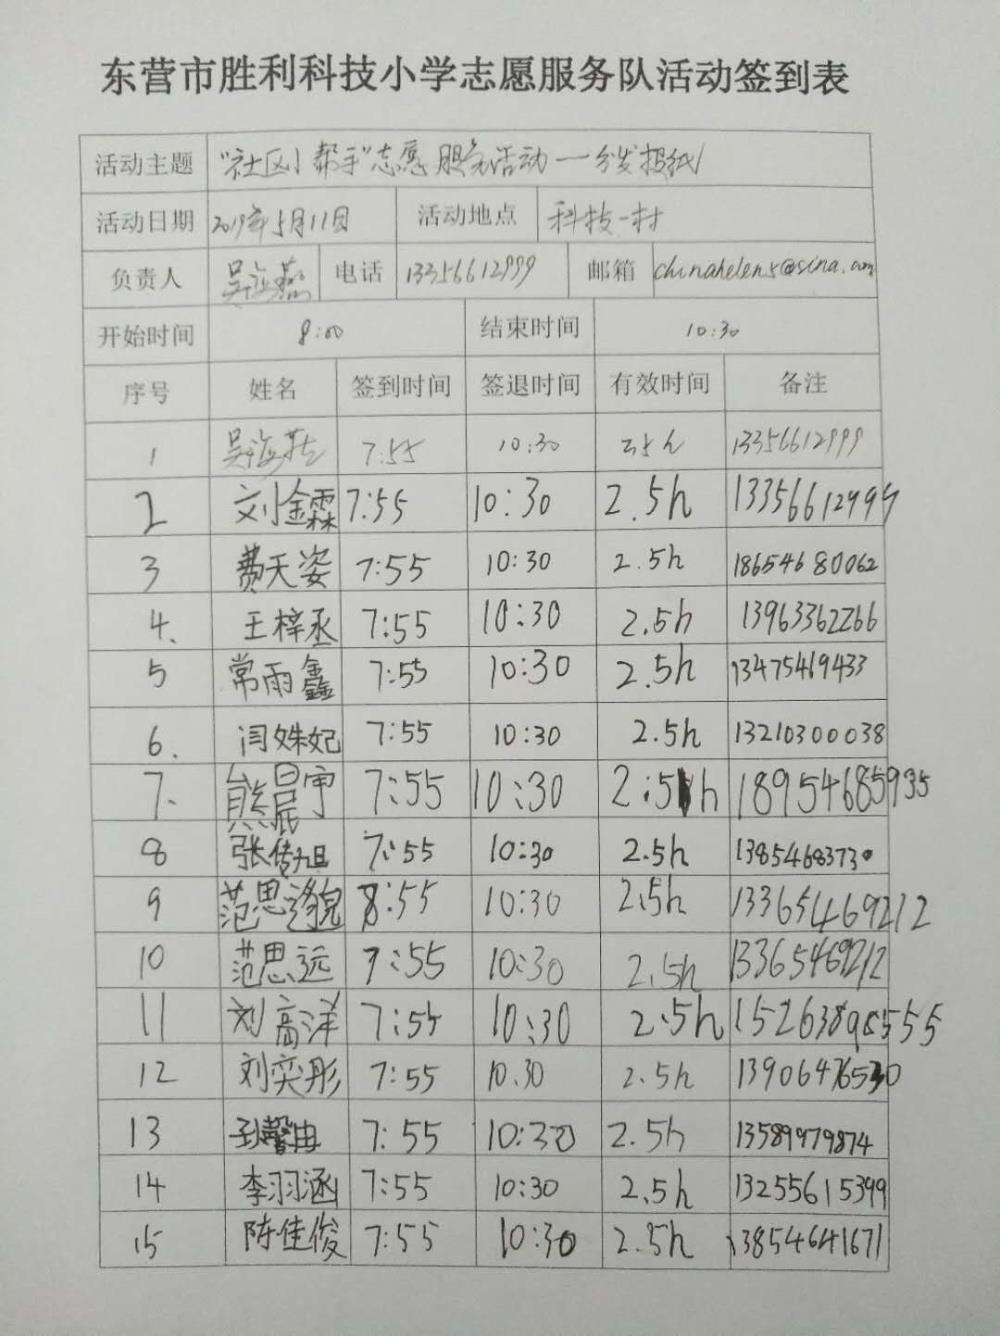 东营市胜利科技小学志愿服务队活动签到表
活动主题 "社区小帮手"志愿服务活动一分发报纸
活动日期 2019年5月11日 活动地点 科技一村
负责人 吴海燕 电话 13356612999 邮箱 chinahelen5@sina.com
开始时间 8:00 结束时间 10:30
序号 姓名 签到时间 签退时间 有效时间 备注
1 吴海燕 7:55 10:30 2.5h 13356612999
2 刘金霖 7:55 10:30 2.5h 13356612999
3 费天姿 7:55 10:30 2.5h 18654680062
4、 王梓丞 7:55 10:30 2.5h 13963362266
5 常雨鑫 7:55 10:30 2.5h 13475469433
6. 闫姝妃 7:55 10:30 2.5h 13210300038
7. 7:55 10:30 2.5h 18954685935
8 张传旭 7:55 10:30 2.5h 13854683730
9 范思邈 :55 10:30 2.5h 133654469212
10 范思远 7:55 10:30 2.5h 13365469212
11 刘高洋 7:55 10:30 2.5h
12 刘奕彤 7:55 10.30 2.5h 13906476530
13 7:55 10:30 2.5h 13589979874
14 李羽涵 7:55 10:30 2.5h 13255615399
15 陈佳俊 7:55 10:30 2.5h 13854641671